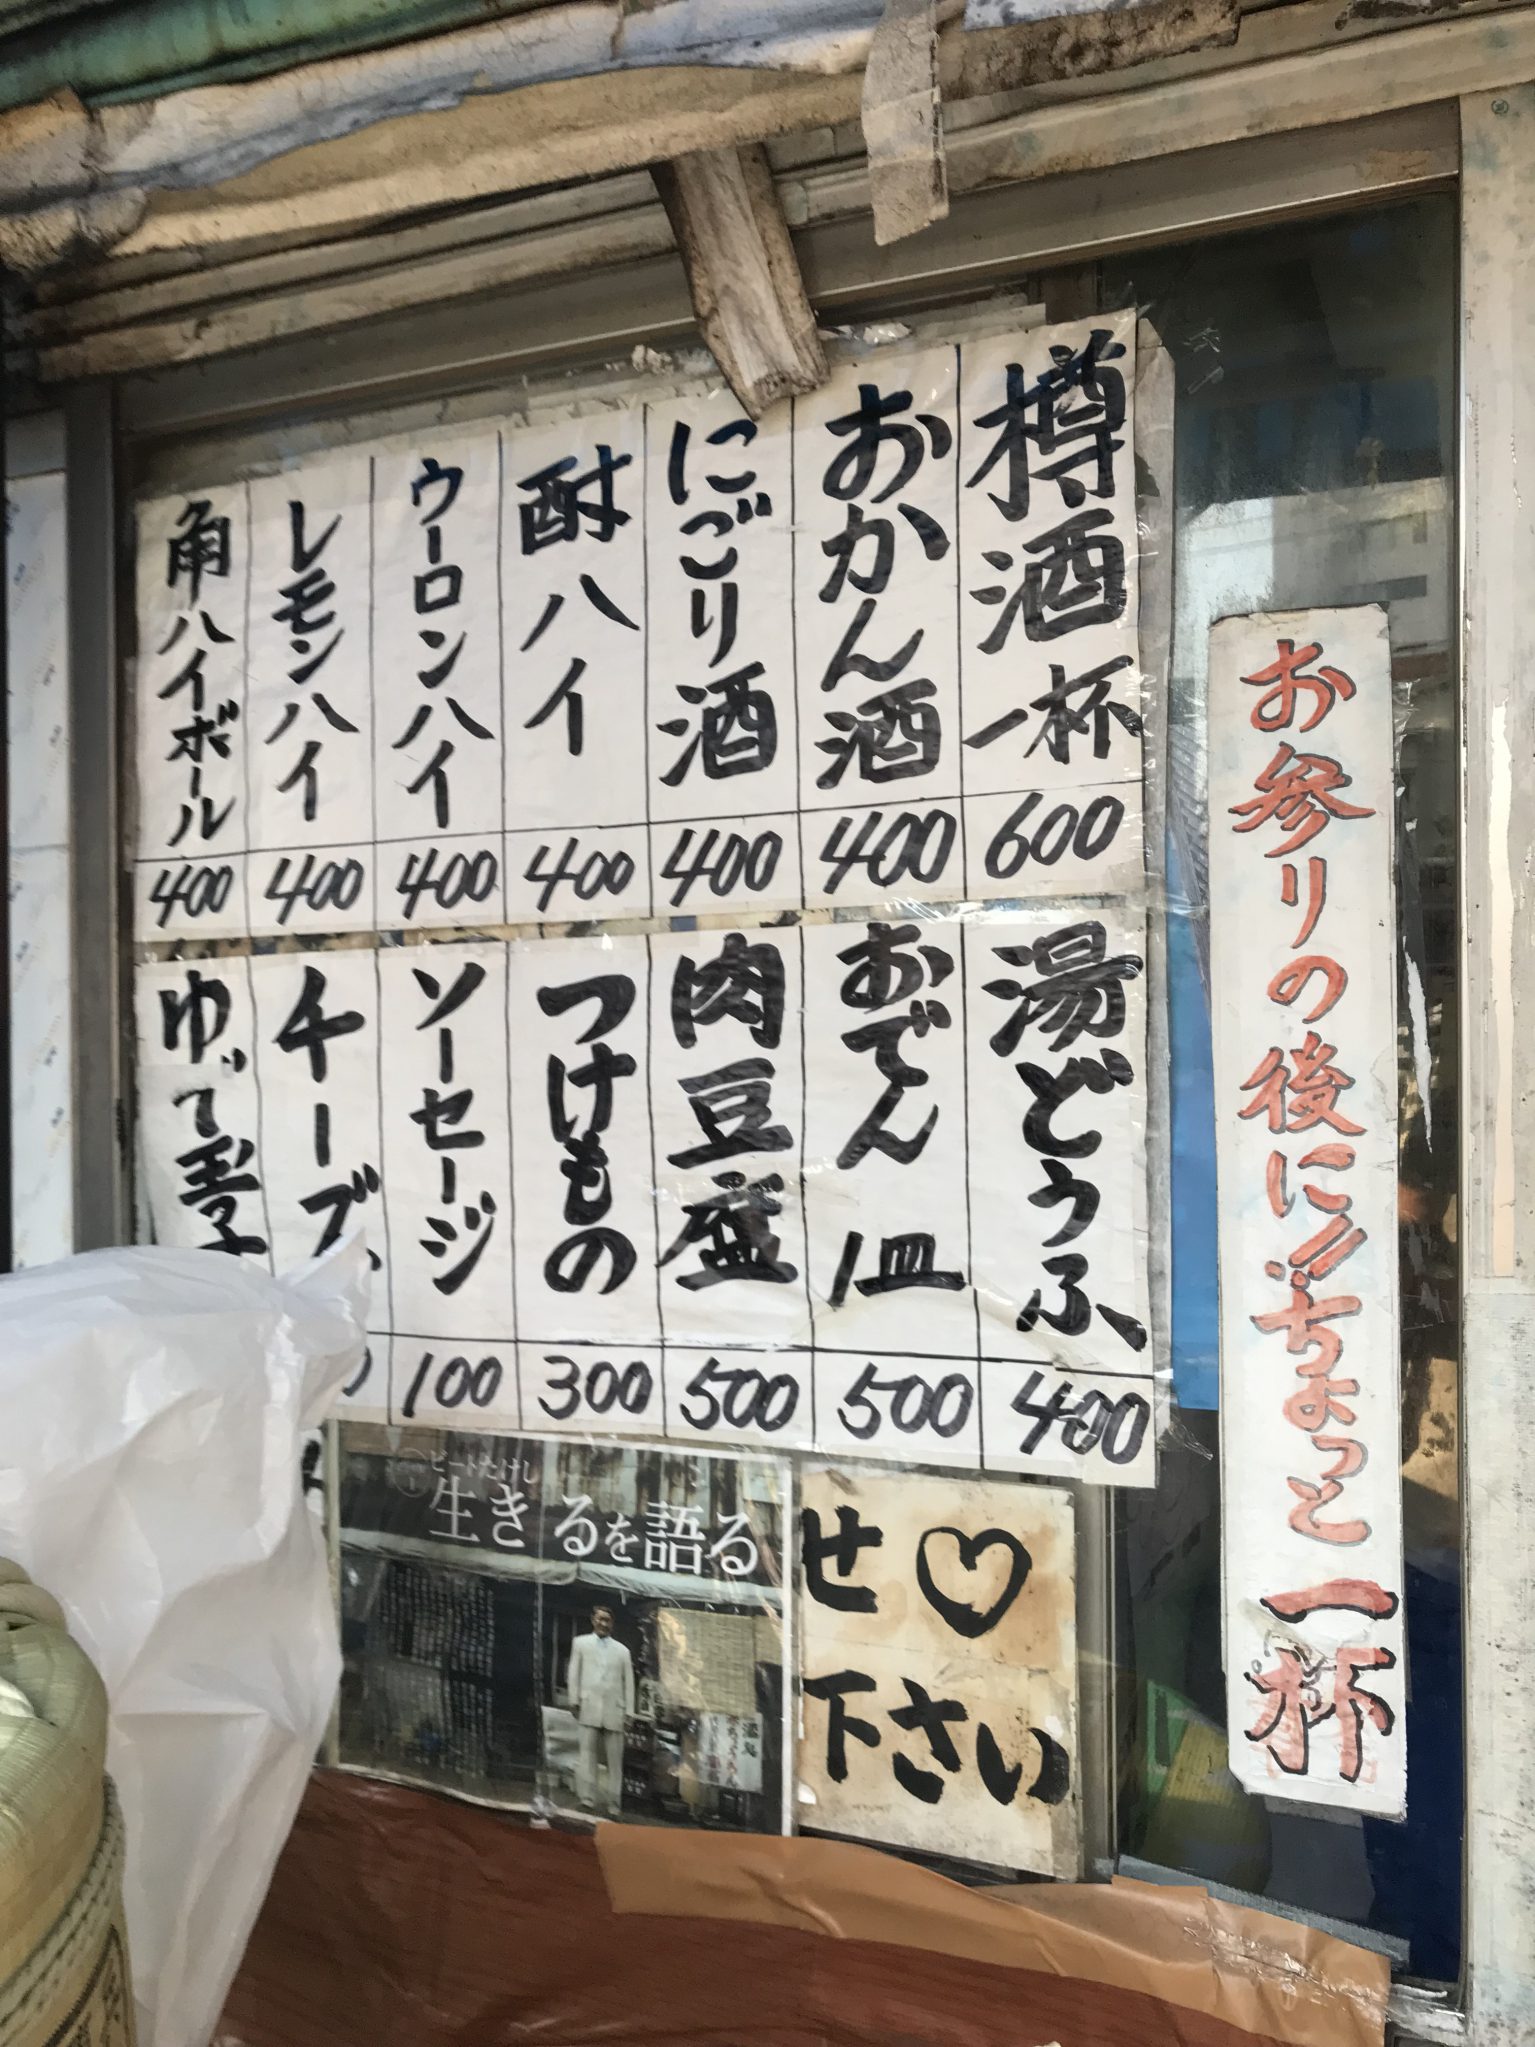 樽酒一杯
600
おかん酒
400
にごり酒
400
酎ハイ
400
ウーロンハイ
400
レモンハイ
400
角ハイボール
400
湯どうふ
400
おでん 1皿
500
肉豆腐
500
つけもの
300
ソーセージ
100
チーズ
ゆで
お参りの後に!!ちょっと一杯
ビートたけし
生きるを語る
せ♡
下さい